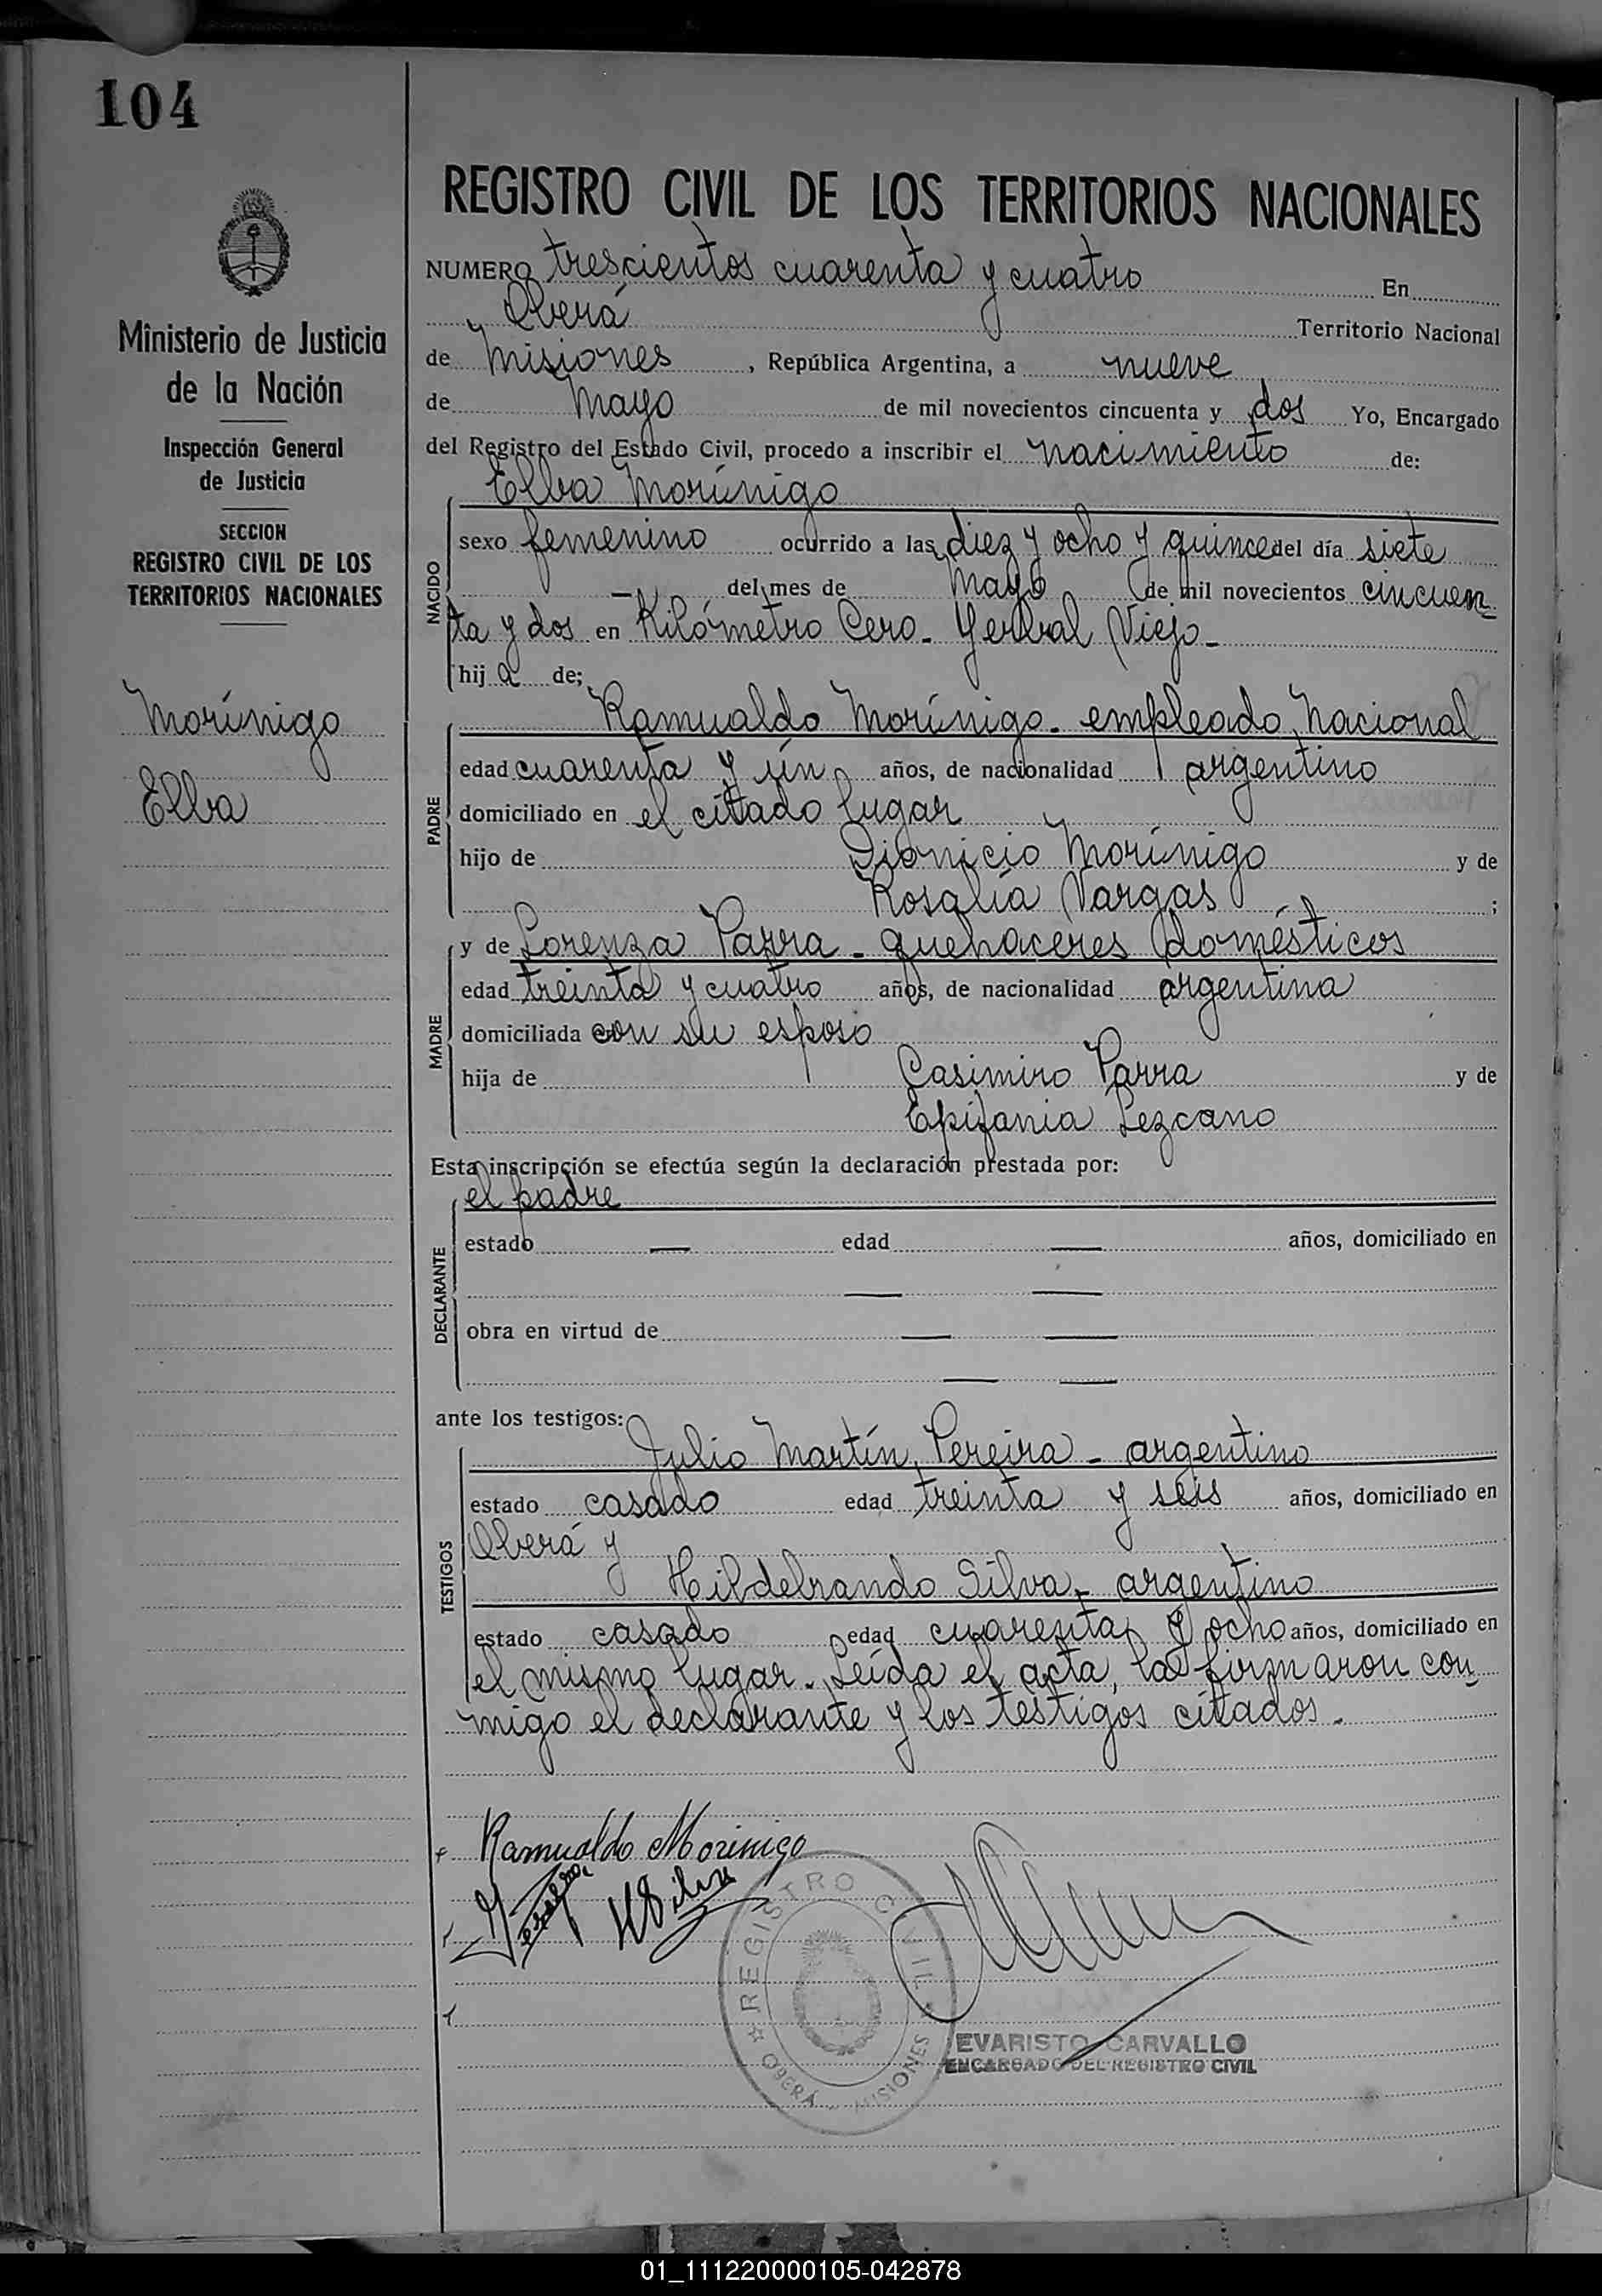 104
Ministerio de Justicia
de la Nación
Inspección General
de Justicia
SECCION
REGISTRO CIVIL DE LOS
TERRITORIOS NACIONALES
Morínigo
Elba
REGISTRO CIVIL DE LOS TERRITORIOS NACIONALES
NUMERO trescientos cuarenta y cuatro En
Oberá Territorio Nacional
de Misiones, República Argentina, a nueve
de Mayo de mil novecientos cincuenta y dos Yo, Encargado
del Registro del Estado Civil, procedo a inscribir el nacimiento de:
Elba Morínigo
NACIDO
sexo femenino ocurrido a las diez y ocho y quince del día siete
— del mes de Mayo de mil novecientos cincuen-
ta y dos en Kilómetro Cero - Yerbal Viejo -
hij a de;
Ramualdo Morínigo - empleado Nacional
PADRE
edad cuarenta y ún años, de nacionalidad argentino
domiciliado en el citado lugar
hijo de Dionicio Morínigo y de
Rosalía Vargas ;
y de Lorenza Parra - quehaceres domésticos
MADRE
edad treinta y cuatro años, de nacionalidad argentina
domiciliada con su esposo
hija de Casimiro Parra y de
Epifania Lezcano
Esta inscripción se efectúa según la declaración prestada por:
el padre
DECLARANTE
estado — edad — años, domiciliado en
— —
obra en virtud de — —
— —
ante los testigos:
Julio Martín Pereira - argentino
TESTIGOS
estado casado edad treinta y seis años, domiciliado en
Oberá y
Hildebrando Silva - argentino
estado casado edad cuarenta y ocho años, domiciliado en
el mismo lugar. Leída el acta, la firmaron con-
migo el declarante y los testigos citados.
Ramualdo Morinigo
HSilva
REGISTRO CIVIL
OBERÁ - MISIONES
EVARISTO CARVALLO
ENCARGADO DEL REGISTRO CIVIL
01_111220000105-042878